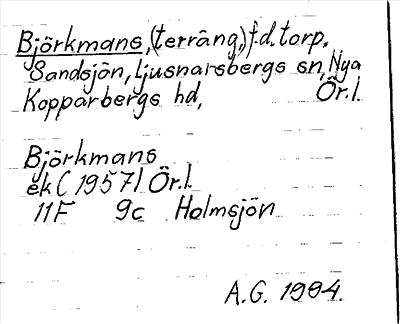 Björkmans, (terräng,) f.d. torp.
Sandsjön, Ljusnarsbergs sn, Nya
Kopparbergs hd, Ör. l.
Björkmans
ek (1957) Ör. l.
11F 9c Holmsjön
A.G. 1994.